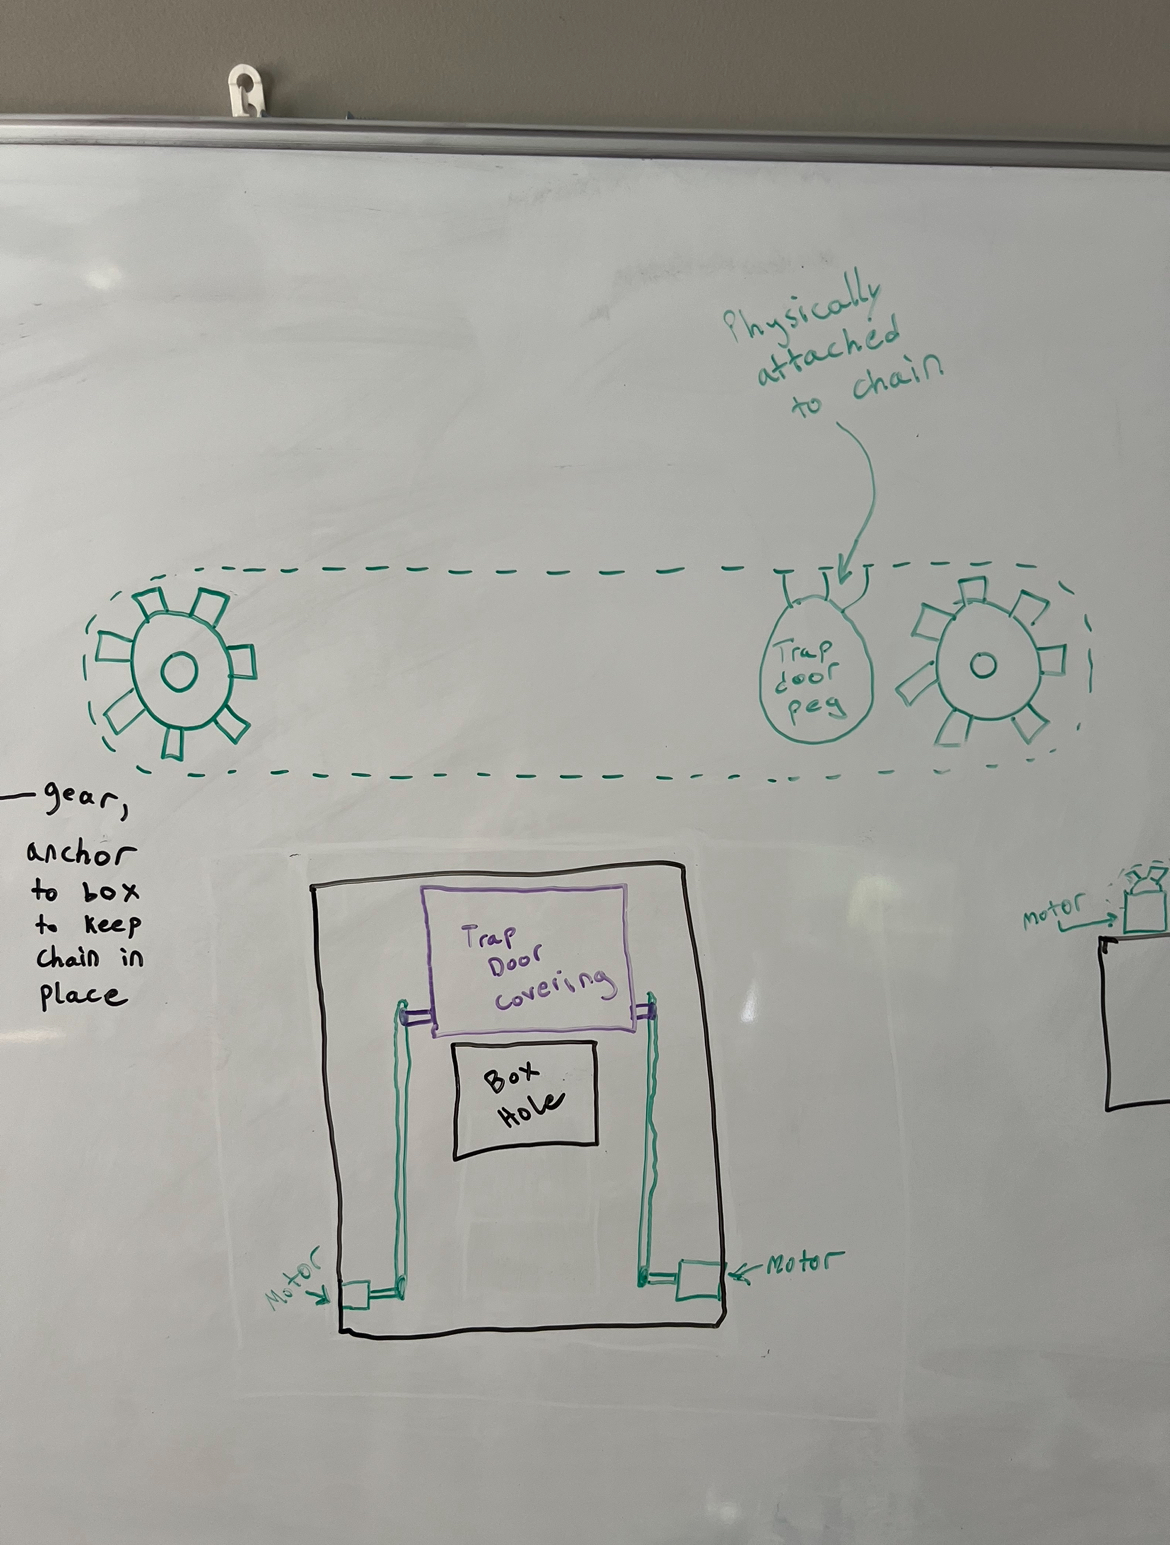 Physically
attached
to chain
Trap
door
peg
gear,
anchor
to box
to keep
chain in
place
Trap
Door
Covering
Box
Hole
Motor
Motor
Motor